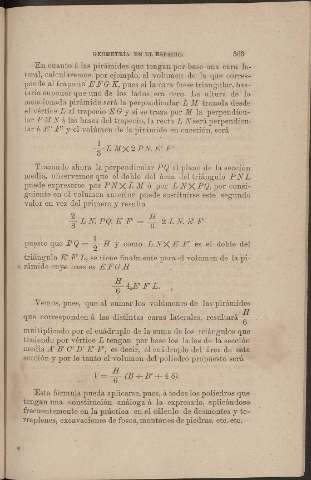 GEOMETRÍA EN EL ESPACIO. 365
En cuanto á las pirámides que tengan por base una cara lateral, calcularemos, por ejemplo, el volumen de la que corresponde al trapecio E F G K, pues si la cara fuese triangular, bastaría suponer que uno de los lados era cero. La altura de la
mencionada pirámide será la perpendicular L M trazada desde
el vértice L al trapecio E G y si se traza por M la perpendicular P M N á las bases del trapecio, la recta L N será perpendicular á E' F' y el volúmen de la pirámide en cuestión, será
1/3 L M × 2 P N. E' F'
Trazando ahora la perpendicular P Q al plano de la sección
media, observemos que el doble del área del triángulo P N L
puede expresarse por P N × L M ó por L N × P Q, por consiguiente en el volumen anterior puede sustituirse este segundo
valor en vez del primero y resulta
2/3 L N. P Q. E' F' = H/6 2 L N. E' F'
puesto que P Q = 1/2 H y como L N × E' F' es el doble del
triángulo E' F' L, se tiene finalmente para el volumen de la pirámide cuya base es E F G H
H/6 4 E' F' L.
Vemos, pues, que al sumar los volúmenes de las pirámides
que corresponden á las distintas caras laterales, resultará H/6
multiplicado por el cuádruplo de la suma de los triángulos que
teniendo por vértice L tengan por base los lados de la sección
media A' B' C' D' E' F', es decir, al cuádruplo del área de esta
sección y por lo tanto el volumen del poliedro propuesto será
V = H/6 (B + B' + 4 S).
Esta fórmula puede aplicarse, pues, á todos los poliedros que
tengan una constitución análoga á la expresada, aplicándose
frecuentemente en la práctica en el cálculo de desmontes y terraplenes, excavaciones de fosos, montones de piedras, etc. etc.